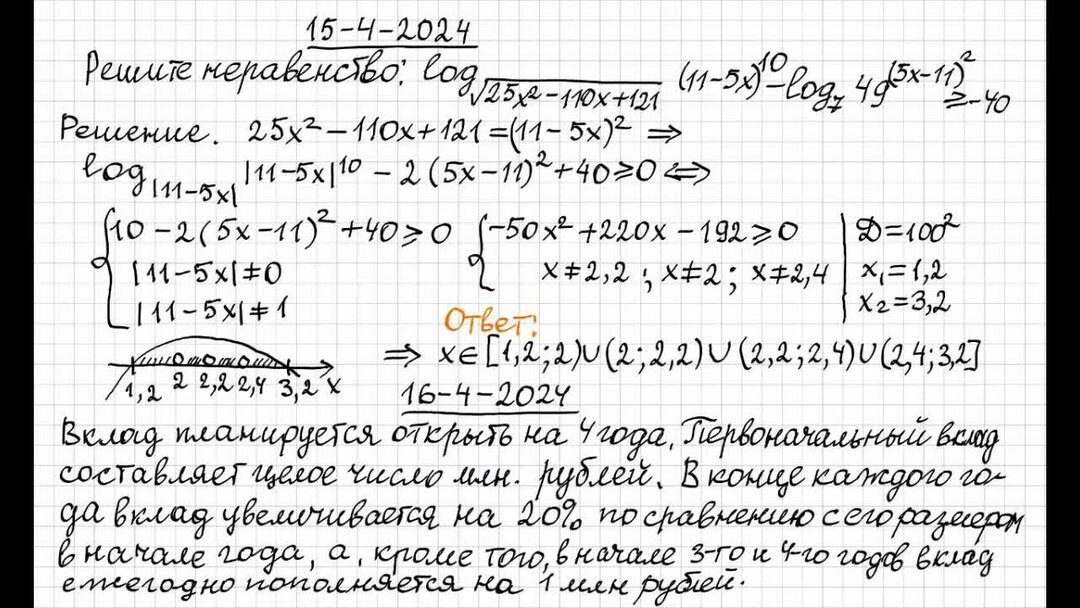 15-4-2024
Решите неравенство: log_√(25x²-110x+121) (11-5x)^10 - log_7 49^(5x-11)² ≥ -40
Решение. 25x² - 110x + 121 = (11-5x)² ⇒
log_|11-5x| |11-5x|^10 - 2(5x-11)² + 40 ≥ 0 ⇔
{ 10 - 2(5x-11)² + 40 ≥ 0 { -50x² + 220x - 192 ≥ 0 | D = 100²
|11-5x| ≠ 0 x ≠ 2,2 ; x ≠ 2 ; x ≠ 2,4 | x₁ = 1,2
|11-5x| ≠ 1 x₂ = 3,2
Ответ:
⇒ x ∈ [1,2; 2) ∪ (2; 2,2) ∪ (2,2; 2,4) ∪ (2,4; 3,2]
1,2 2 2,2 2,4 3,2 x
16-4-2024
Вклад планируется открыть на 4 года. Первоначальный вклад
составляет целое число млн. рублей. В конце каждого го-
да вклад увеличивается на 20% по сравнению с его размером
в начале года, а, кроме того, в начале 3-го и 4-го годов вклад
ежегодно пополняется на 1 млн рублей.